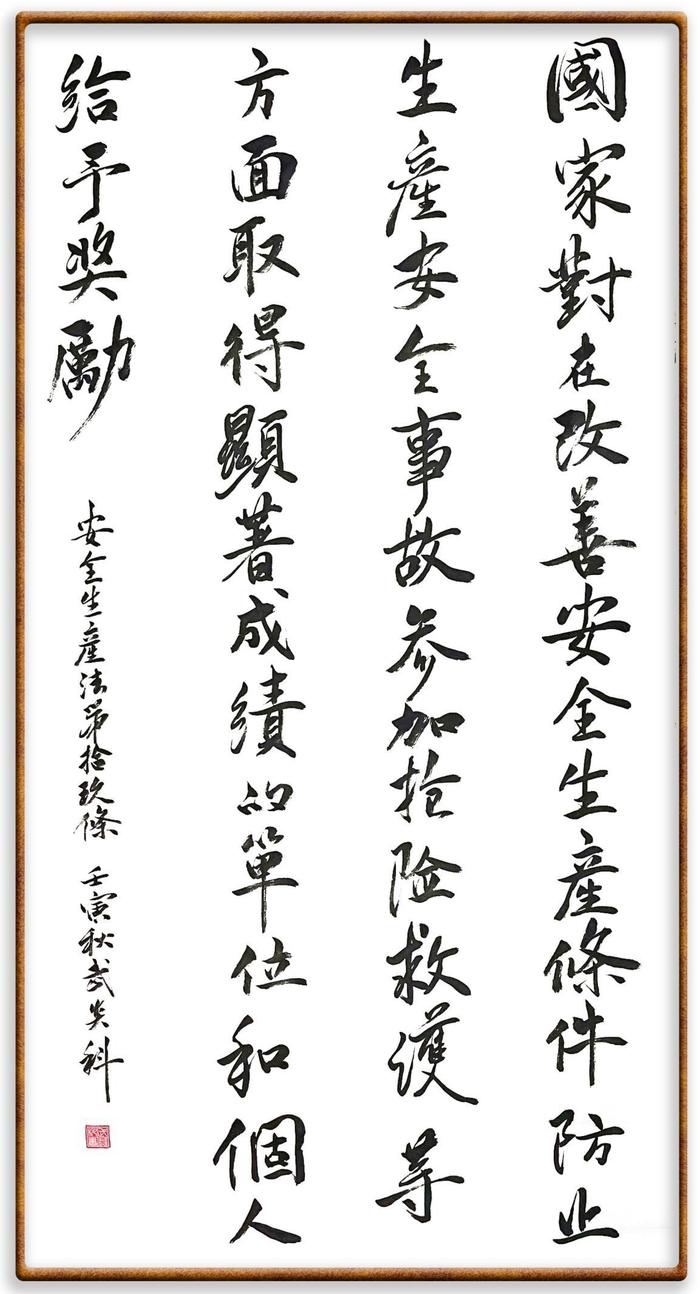 國家對在改善安全生產條件防止
生產安全事故参加抢险救護等
方面取得顯著成績的單位和個人
给予奖勵
安全生產法第拾玖條 壬寅秋武炎科